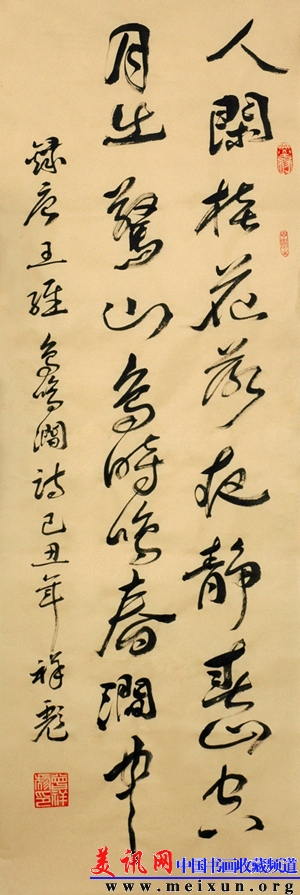 人閑桂花落夜静春山空
月出驚山鳥時鳴春澗中
録唐王維鳥鳴澗詩己丑年祥彪
美讯网 中国书画收藏频道
www.meixun.org